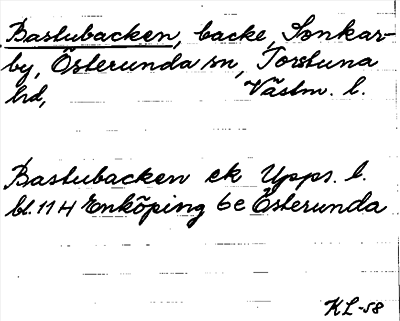 Bastubacken, backe, Sonkar-
by, Österunda sn, Torstuna
hrd, Västm. l.
Bastubacken ek Upps. l.
bl. 11 H Enköping 6e Österunda
KL-58